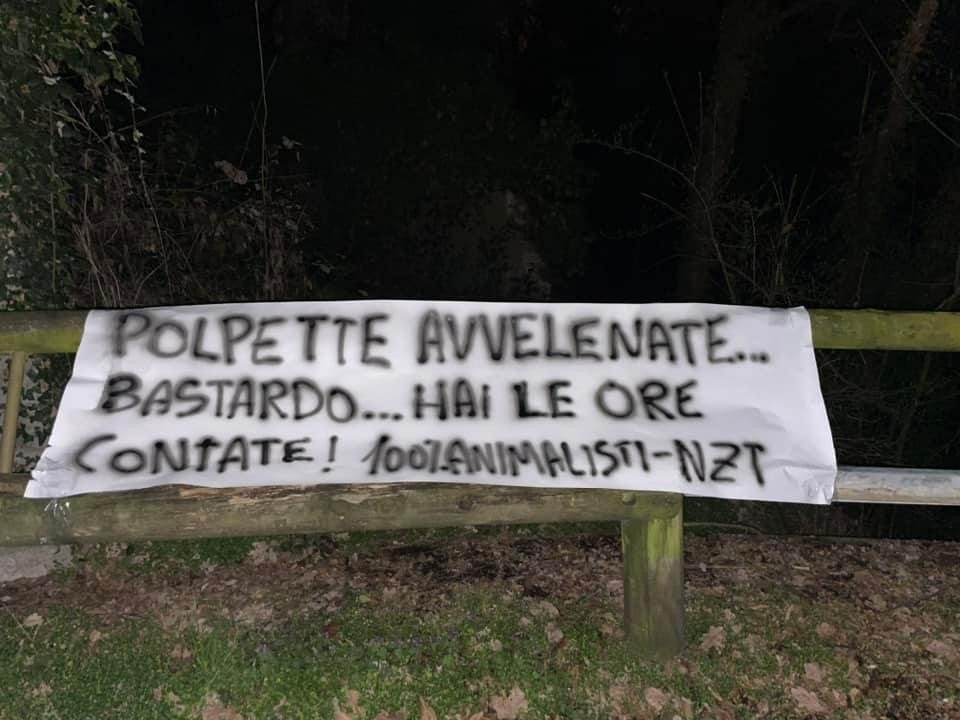 POLPETTE AVVELENATE...
BASTARDO... HAI LE ORE
CONTATE! 100%ANIMALISTI-NZT